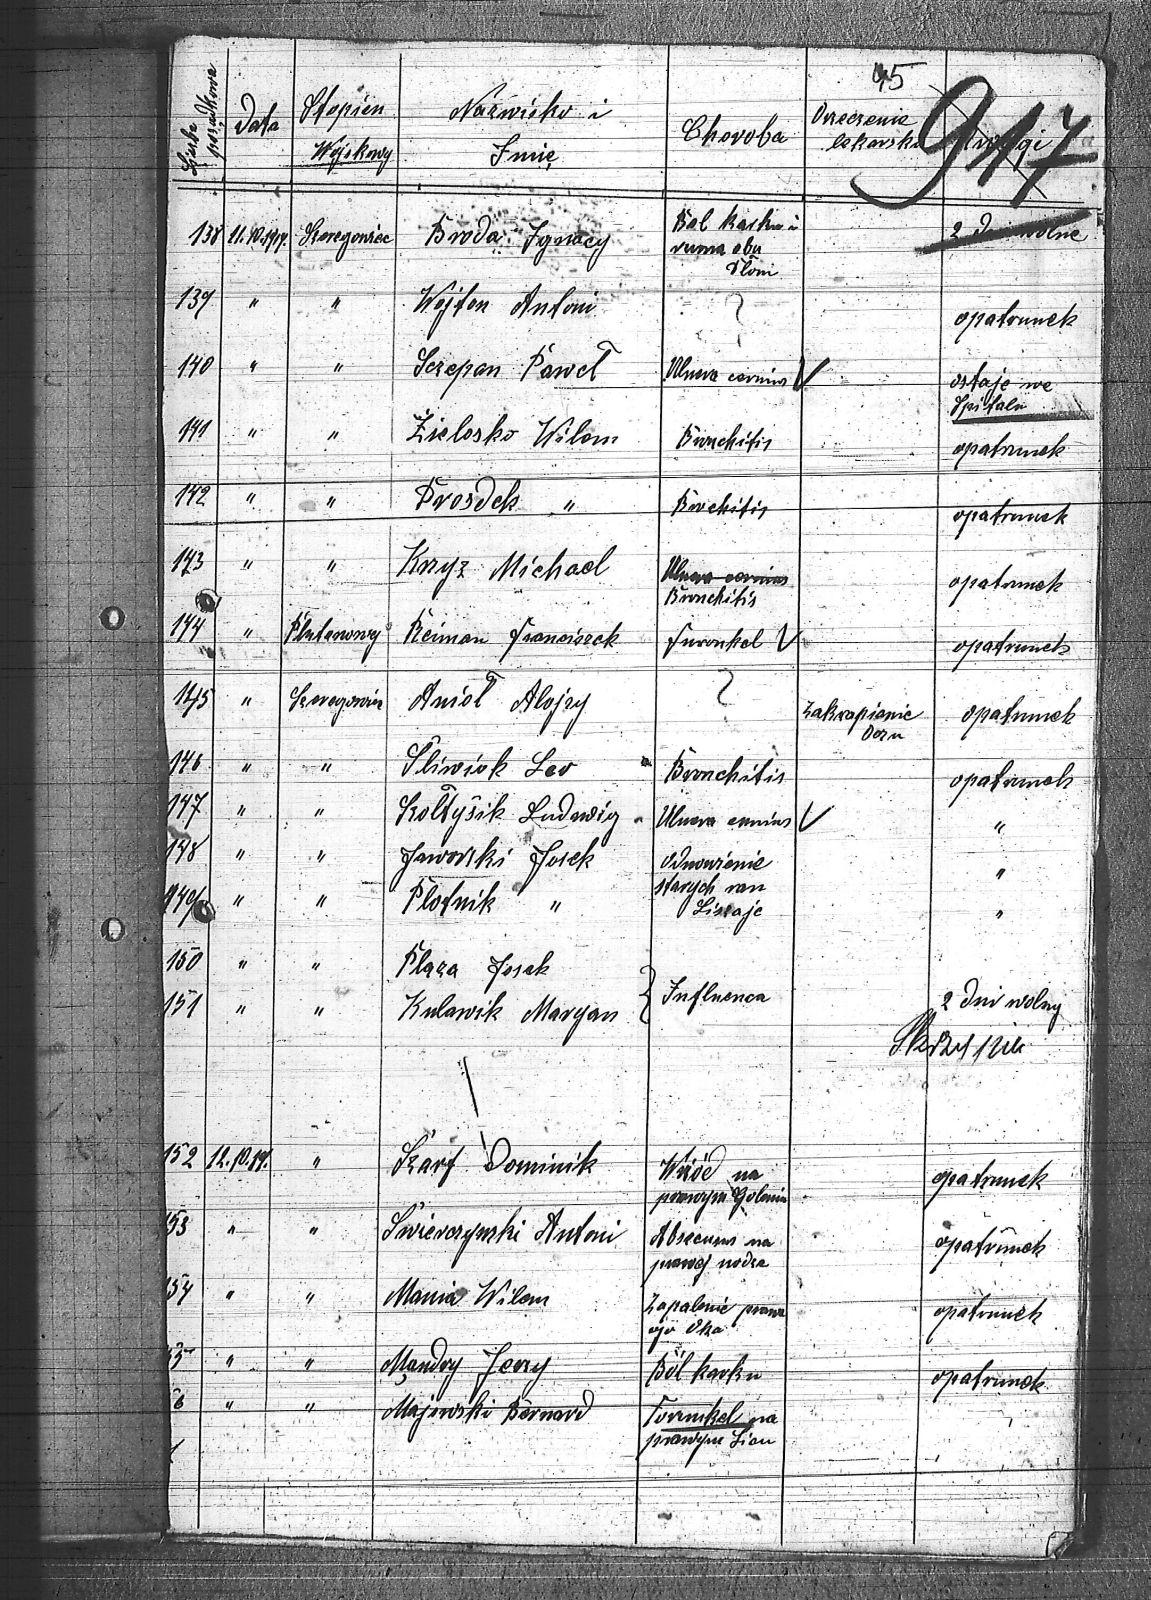 45
Liczba porządkowa Data Stopień Wojskowy Nazwisko i Imię Choroba Orzeczenie lekarskie Uwagi
947
138 11.10.1919. Szeregowiec Broda Ignacy Ból karku i
ruma obu
dłoni 2 dni wolne
139 " " Wojton Antoni ? opatrunek
140 " " Szczepan Paweł Ulcera V ostaje we
Szpitalu
141 " " Zielosko Wilem Bronchitis opatrunek
142 " " Prosdek " Bronchitis opatrunek
143 " " Kryz Michael Ulcera
Bronchitis opatrunek
144 " Plutonowy Reiman Franciszek Furunkel V opatrunek
145 " Szeregowiec Anioł Alojzy ? Zakrapianie
oczu opatrunek
146 " " Śliwiok Leo Bronchitis opatrunek
147 " " Szołtysik Ludwig Ulcera V "
148 " " Jaworski Josek odnowienie
starych ran "
149 " " Plotnik " Liszaje "
150 " " Plaza Josek
151 " " Kulawik Maryan } Influenca 2 dni wolny
152 12.10.19. " Szarf Dominik Wrzód na
prawym Goleniu opatrunek
153 " " Świerczynski Antoni Abscenss na
prawej nodze opatrunek
154 " " Mania Wilem Zapalenie prawe
ego oka opatrunek
55 " " Mandry Jerzy Ból karku opatrunek
6 " " Majewski Bernard Forunkel na
prawym